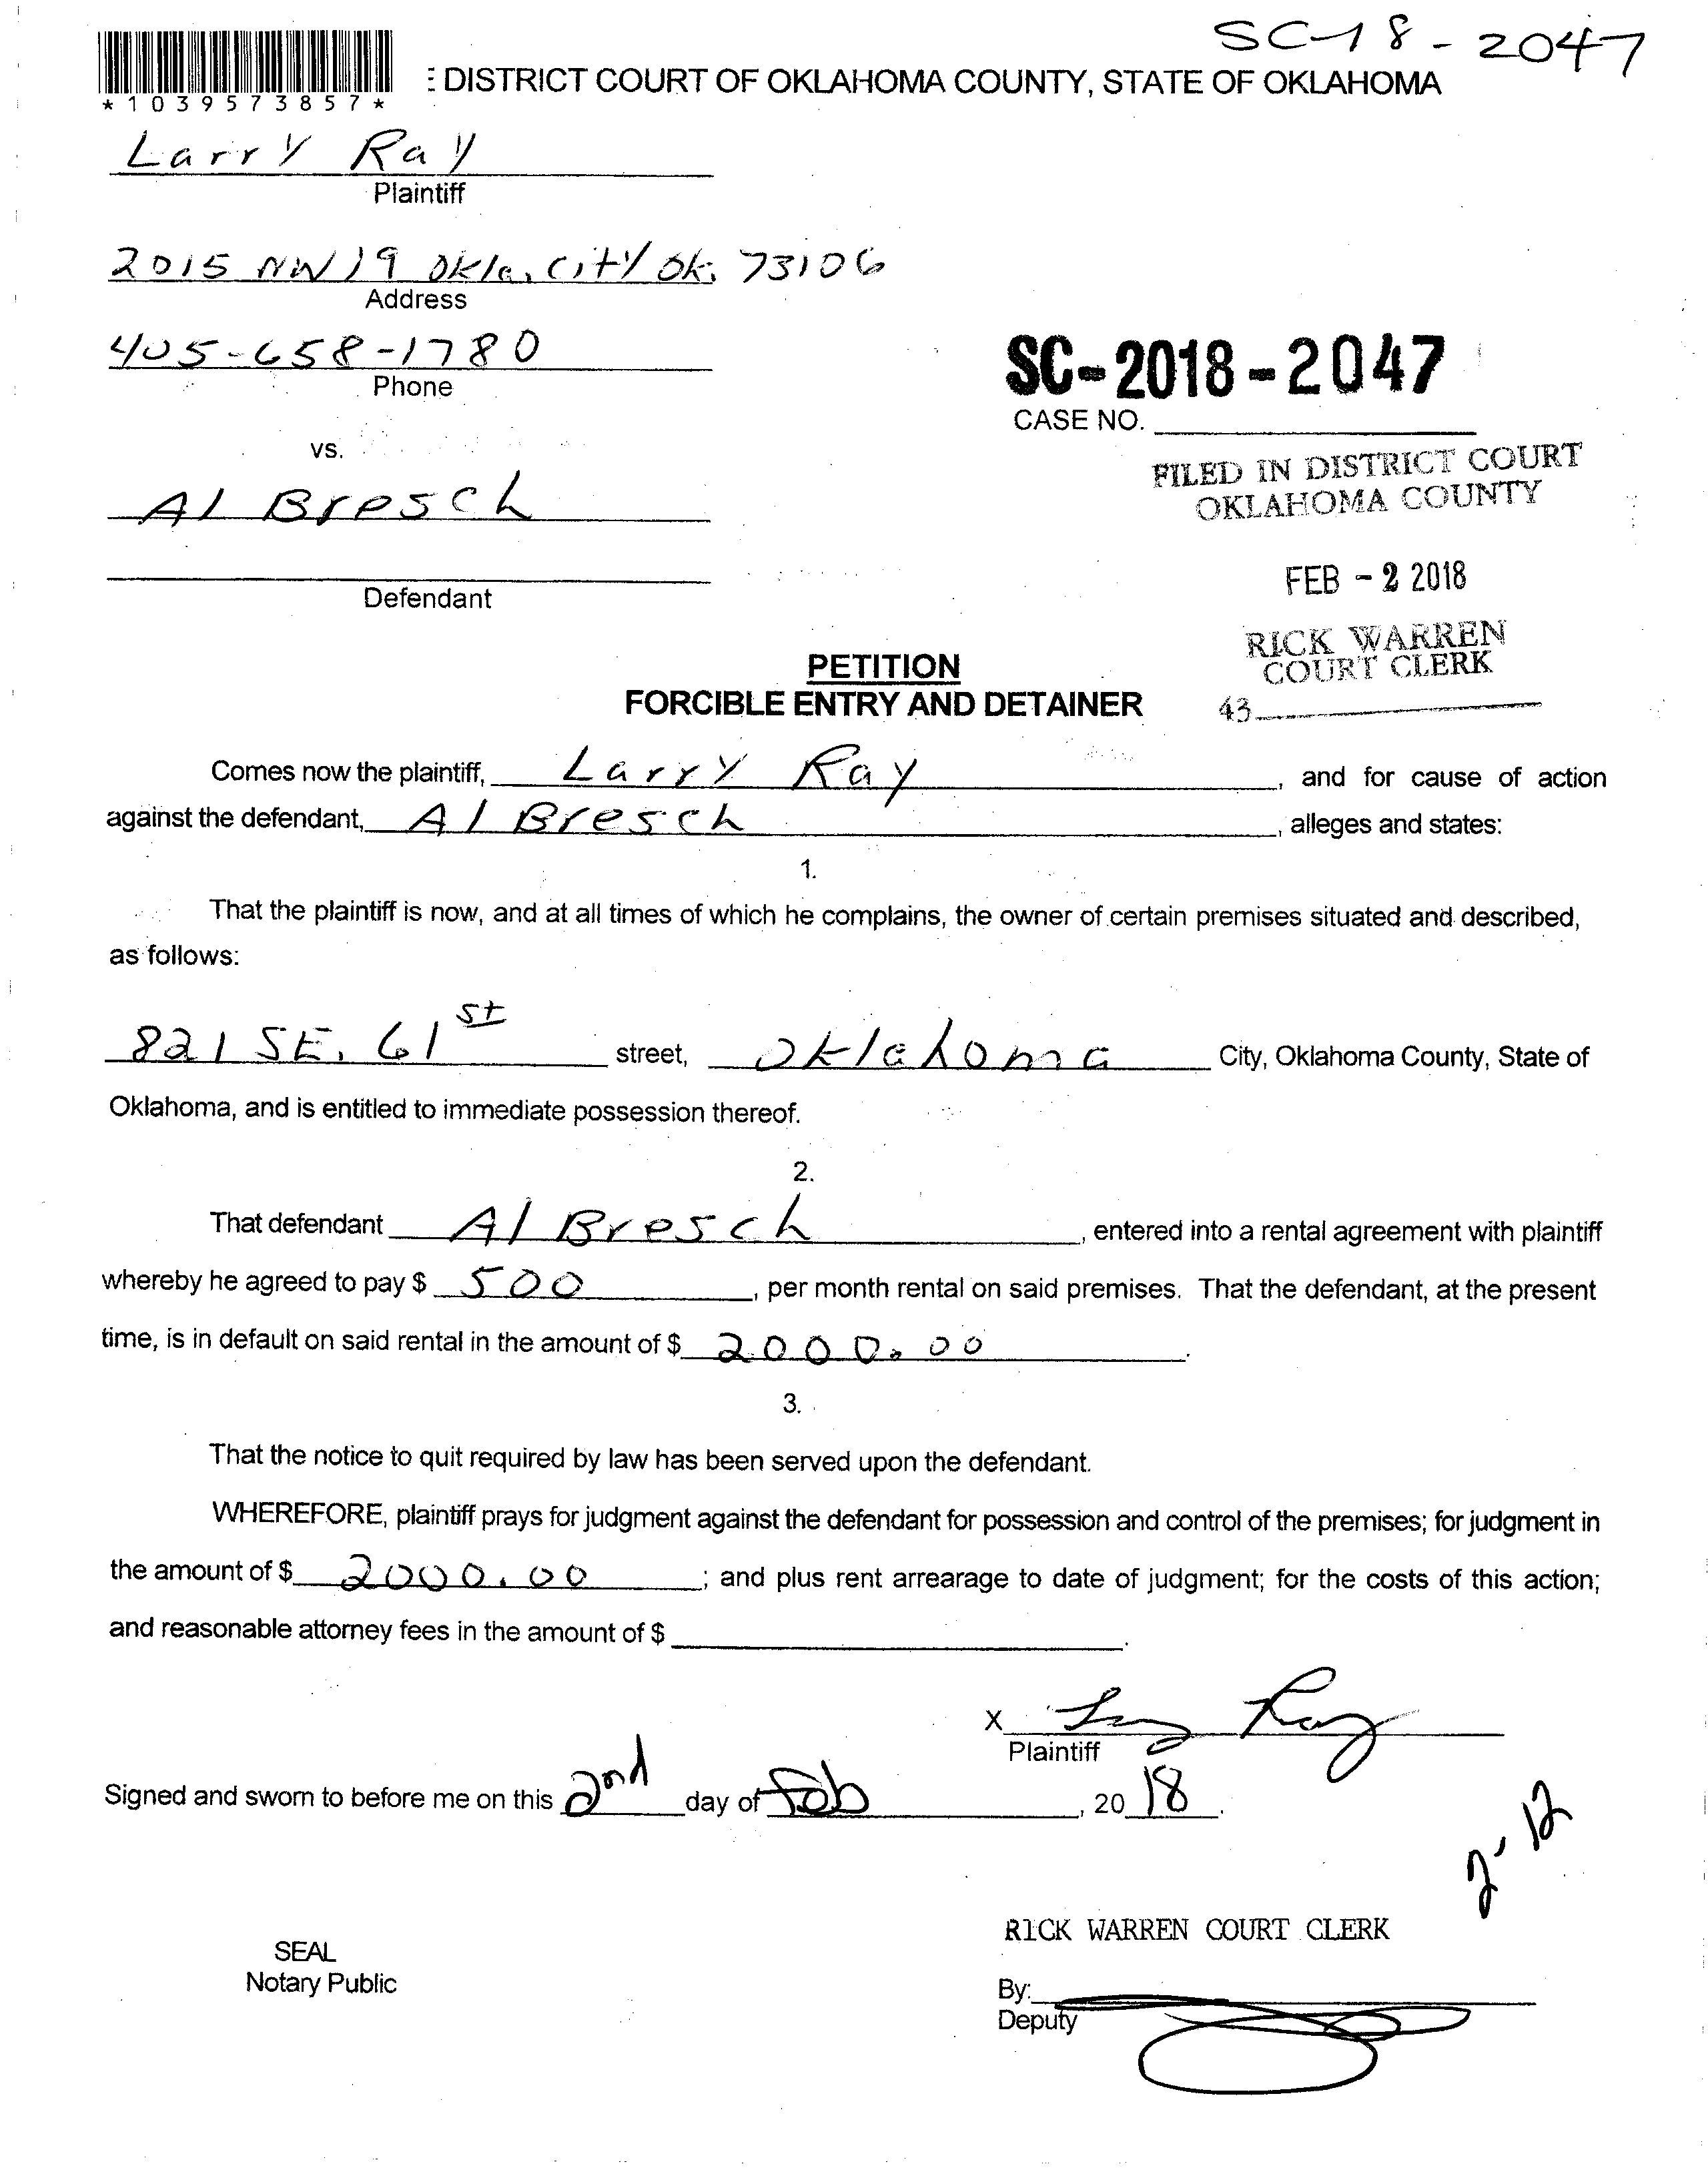 SC-18-2047
*1039573857*
E DISTRICT COURT OF OKLAHOMA COUNTY, STATE OF OKLAHOMA
Larry Ray
Plaintiff
2015 NW 19 Okla. City Ok. 73106
Address
405-658-1780
Phone
SC-2018-2047
CASE NO.
vs.
FILED IN DISTRICT COURT
OKLAHOMA COUNTY
Al Bresch
FEB - 2 2018
Defendant
RICK WARREN
COURT CLERK
43
PETITION
FORCIBLE ENTRY AND DETAINER
Comes now the plaintiff, Larry Ray, and for cause of action
against the defendant, Al Bresch, alleges and states:
1.
That the plaintiff is now, and at all times of which he complains, the owner of certain premises situated and described,
as follows:
821 SE. 61st street, Oklahoma City, Oklahoma County, State of
Oklahoma, and is entitled to immediate possession thereof.
2.
That defendant Al Bresch, entered into a rental agreement with plaintiff
whereby he agreed to pay $ 500, per month rental on said premises. That the defendant, at the present
time, is in default on said rental in the amount of $ 2000.00.
3.
That the notice to quit required by law has been served upon the defendant.
WHEREFORE, plaintiff prays for judgment against the defendant for possession and control of the premises; for judgment in
the amount of $ 2000.00; and plus rent arrearage to date of judgment; for the costs of this action;
and reasonable attorney fees in the amount of $ .
X Larry Ray
Plaintiff
Signed and sworn to before me on this 2nd day of Feb, 2018.
2-12
RICK WARREN COURT CLERK
SEAL
Notary Public
By:
Deputy